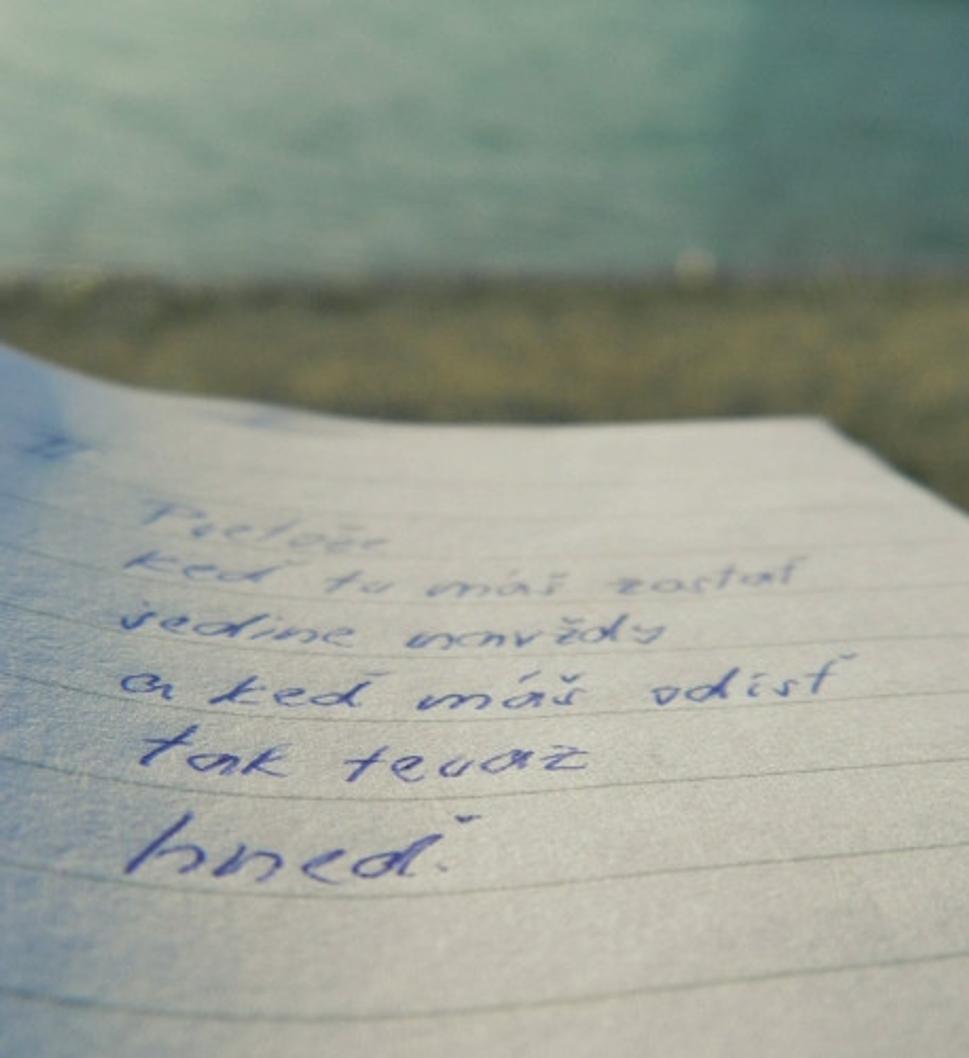 Pretože
keď tu máš zostať
jedine navždy
a keď máš odísť
tak teraz
hneď.